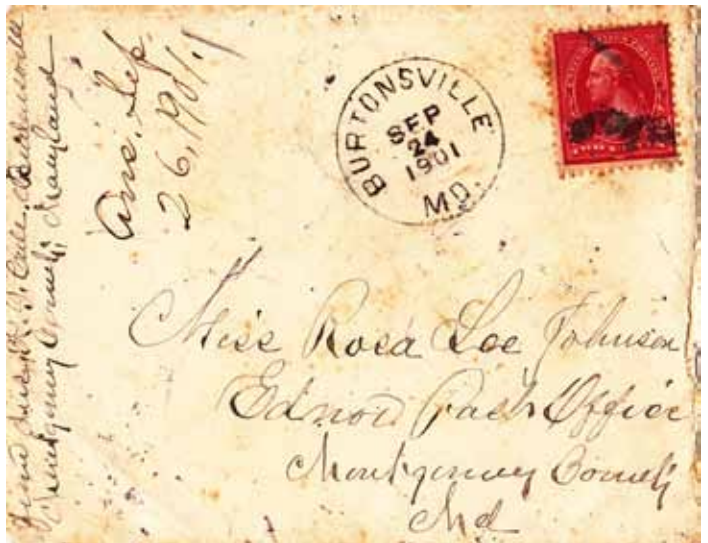 BURTONSVILLE
SEP
24
1901
MD.
Ans. Sep.
26, 1901
Miss Rosa Lee Johnson
Ednor Post Office
Montgomery County
Md
Burtonsville
Montgomery County Maryland